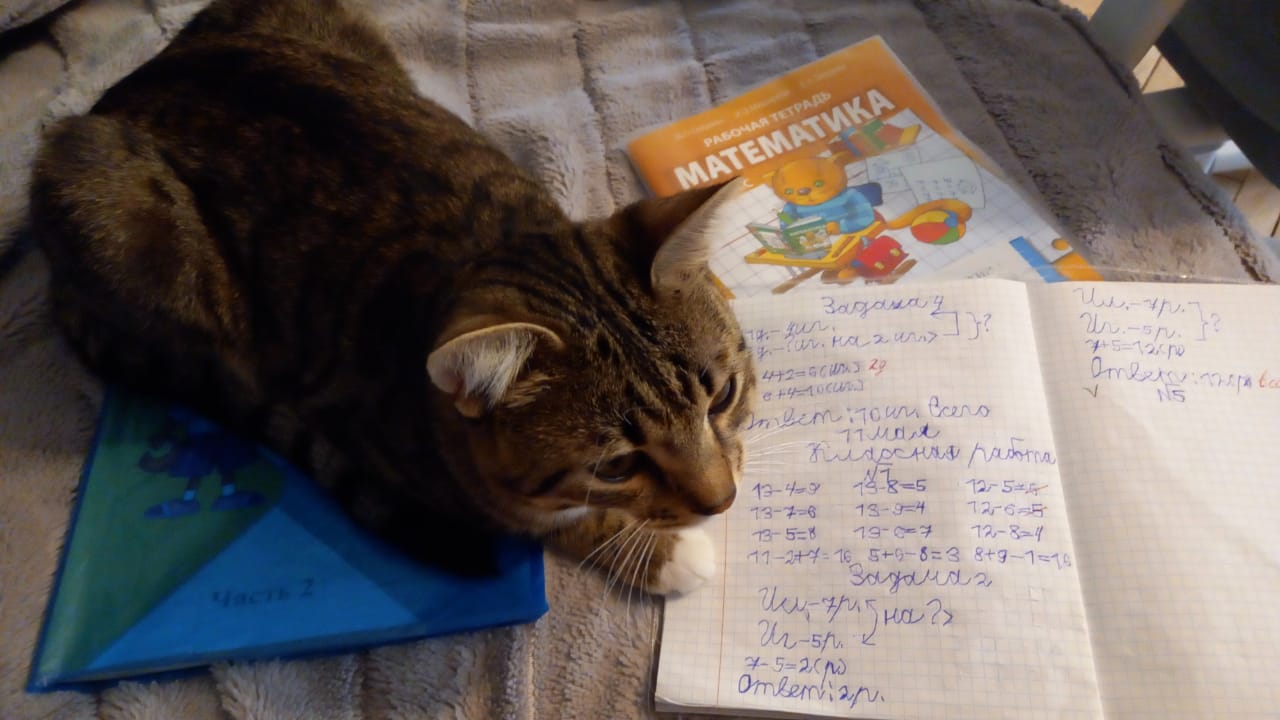 РАБОЧАЯ ТЕТРАДЬ
МАТЕМАТИКА
Часть 2
Задача 4
на 2 иг.>
]}?
4+2=6(иг.) 2д
6+4=10(иг.)
Ответ: 10 иг. всего
11 мая
Классная работа
№1
13-4=9 13-8=5 12-5=6
13-7=6 13-9=4 12-6=5
13-5=8 13-6=7 12-8=4
11-2+7=16 5+6-8=3 8+9-1=16
Задача 2
Ил.-7р.
на ?>
Иг-5р.
7-5=2(р)
Ответ: 2р.
Ил.-7р.
}?
Иг.-5р.
7+5=12(р)
Ответ:
№5